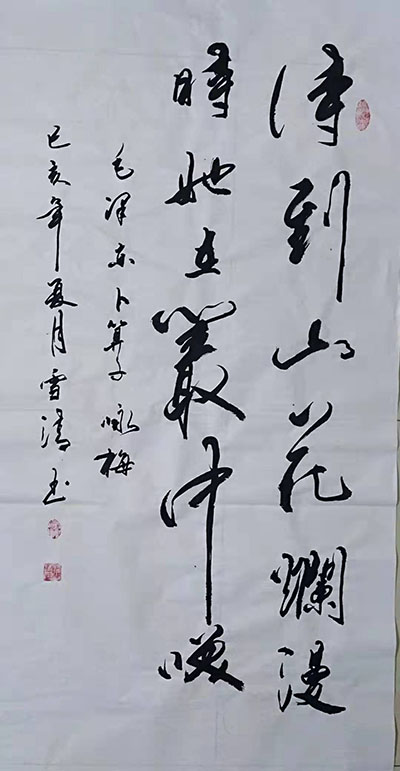 待到山花爛漫
時她在叢中咲
毛澤东卜算子咏梅
己亥年夏月雪清书